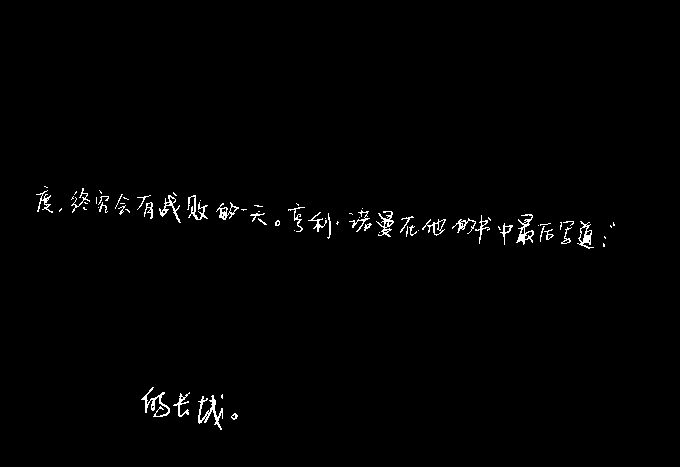 度,终究会有战败的一天。亨利·诺曼在他的书中最后写道:“
的长城。